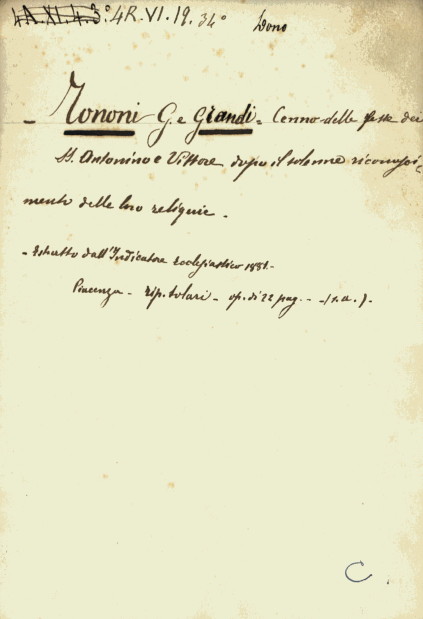 4A.XI.4.3° 4R.VI.19.34° Dono
- Tononi G. e Grandi = Cenno delle feste dei
SS. Antonino e Vittore dopo il solenne riconosci-
mento delle loro reliquie -
- Estratto dall'Indicatore Ecclesiastico 1881 -
Piacenza - tip. Solari - op. di 22 pag. - - (s.a.) -
C